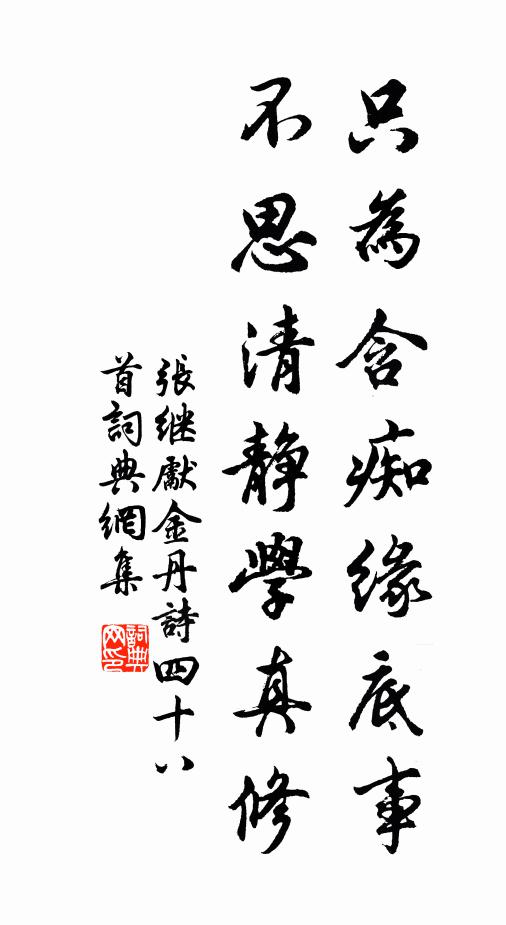 只為含痴緣底事
不思清靜學真修
張继獻金丹詩四十八
首詞典網集
詞典網印